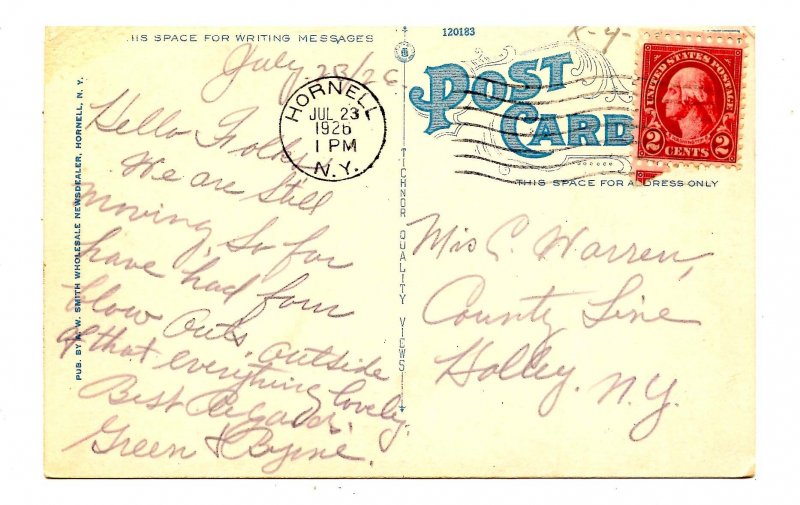 HIS SPACE FOR WRITING MESSAGES
120183
K-4-
July 23/26
HORNELL
JUL 23
1926
1 PM
N.Y.
POST
CARD
UNITED STATES POSTAGE
2 CENTS 2
THIS SPACE FOR A DRESS ONLY
Hello Folks,
We are still
moving, So far
have had four
blow outs. Outside
of that everything lovely.
Best Regards.
Green &
Mis C. Warren,
County Line
Holley. N.Y.
PUB. BY W. SMITH WHOLESALE NEWSDEALER, HORNELL, N. Y.
TICHNOR QUALITY VIEWS